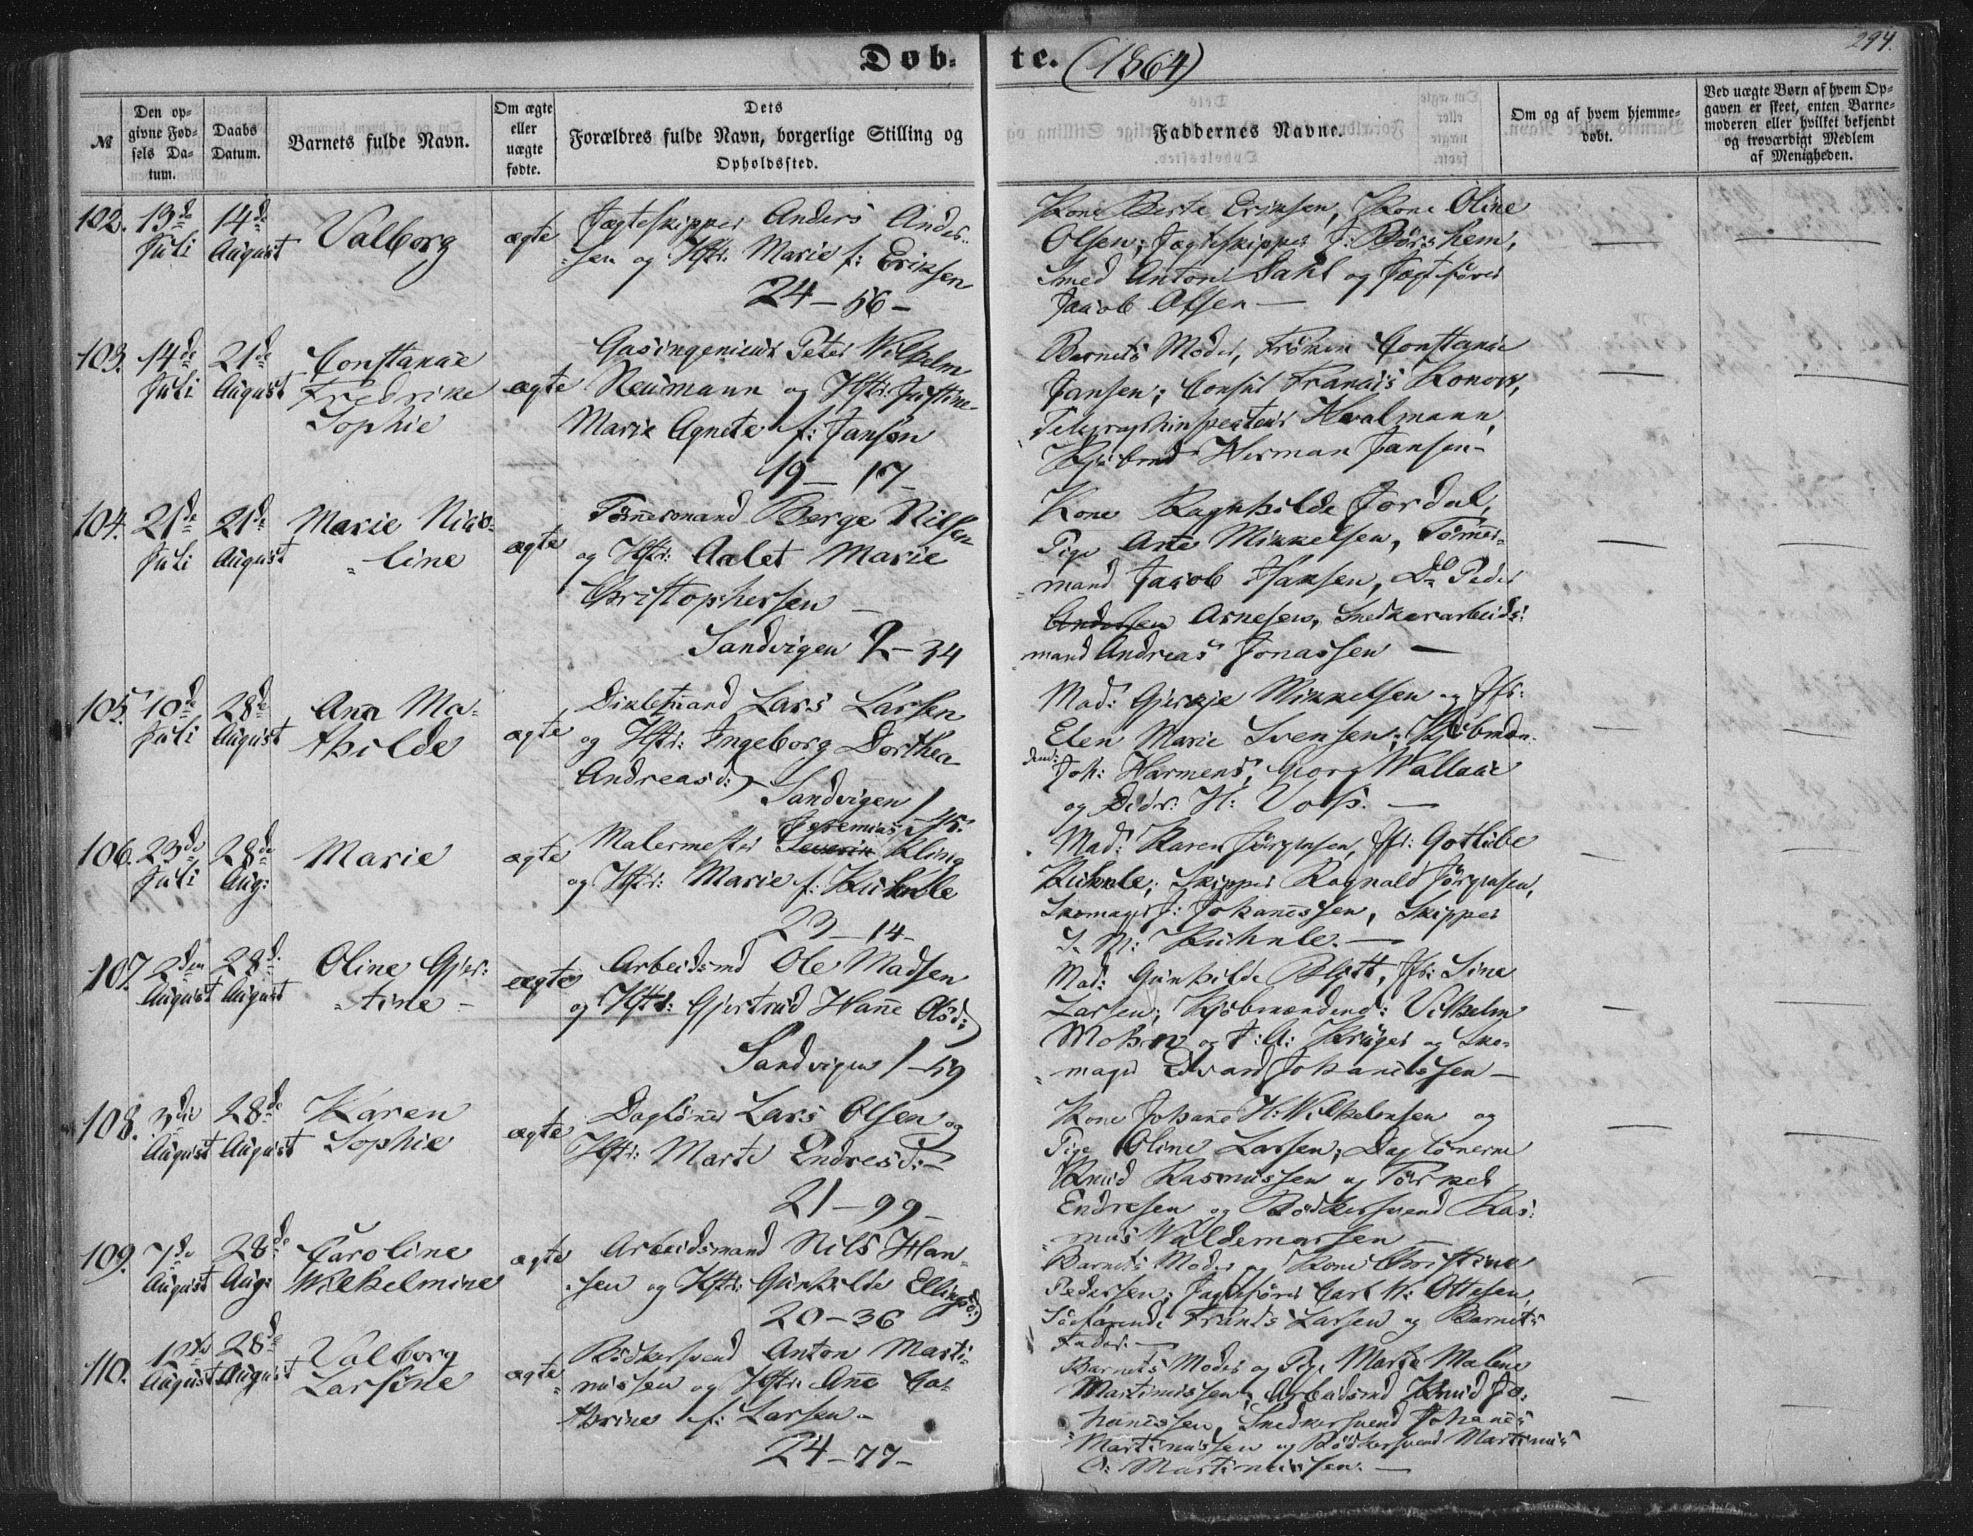 Døb-te. (1864)
294.
№
Den opgivne Fødsels Datum.
Daabs Datum.
Barnets fulde Navn.
Om ægte eller uægte fødte.
Dets Forældres fulde Navn, borgerlige Stilling og Opholdssted.
Faddernes Navne.
Om og af hvem hjemmedøbt.
Ved uægte Børn af hvem Opgaven er skeet, enten Barnemoderen eller hvilket bekjendt og troværdigt Medlem af Menigheden.
102. 13de Juli
14de August
Valborg
ægte
Jægteskipper Anders Ander-
sen og Hstr: Marie f: Eriksen
24-56-
Kone Berte Eriksen, Kone Oline
Olsen; Jægteskipper J: Børsheim,
Smed Anton Dahl og Jægtfører
Jacob Olsen —
103. 14de Juli
21de August
Constance
Fredrike
Sophie
ægte
Gasingenieur Peter Wilhelm
Neumann og Hstr: Justine
Marie Agnete f: Janson
19-17-
Barnets Moder, Frøken Constance
Jansen; Consul Francis Konow,
Telegraphinspecteur
Kjøbmd Herman Jansen-
104. 21de Juli
21de August
Marie Nico-
line
ægte
Tømmermand Berge Nilsen
og Hstr: Aalet Marie
Christophersen —
Sandvigen 2-34
Kone Ragnhilde Jordal,
Pige Ane Mikkelsen, Tømmer-
mand Jacob Hansen, Do Peder
Andersen Arnesen, Snedkerarbeids-
mand Andreas Jonassen —
105. 10de Juli
28de August
Ana Ma-
thilde
ægte
Lars Larsen
og Hstr: Ingeborg Dorthea
Andreasd:
Sandvigen 1-45.
Mad: Mikkelsen og Jfr:
Elen Marie Svensen; Kjøbmæn-
dene: Joh: Harmens, Georg Wallace
og Didr: H: Voss. —
106. 23de Juli
28de Aug:
Marie
ægte
Jeremias
Malermester Severin Kling
og Hstr: Marie f: Kuhnle
23-14-
Mad: Karen Jørgensen, Jfr: Gotlibe
Kuhnle; Skipper Ragnald Jørgensen,
Skomager J: Johannessen, Skipper
J. M: Kuhnle. —
107. 2den August
28de August
Oline Gjer-
tine -
ægte
Arbeidsmd Ole Madsen
og Hstr: Gjertrud Hanne Olsd:
Sandvigen 1-59
Mad: Gunhilde Blytt, Jfr: Sine
Larsen; Kjøbmændene: Vilhelm
Mohn og F: A: Krüger og Sko-
mager Edvard Johannessen —
108. 3die August
28de August
Karen
Sophie
ægte
Dagløner Lars Olsen og
Hstr: Marte Endresd: —
21-99-
Kone Johanne H: Wilhelmsen og
Pige Oline Larsen; Daglønerne
Knud Rasmussen og Torkel
Endresen og Bødkersvend Ras-
mus Waldemarsen —
109. 7de August
28de Aug:
Caroline
Wilhelmine
ægte
Arbeidsmand Nils Han-
sen og Hstr: Gunhilde Ellingsd:
20-36
Barnets Moder og Kone Christine
Pedersen; Jagtfører Carl W: Ottesen,
Søfarende Frants Larsen og Barnets
Fader. —
110. August
28de August
Valborg
Larsine
ægte
Bødkersvend Anton Marti-
nussen og Hstr: Ane Ca-
thrine f: Larsen-
24-77-
Barnets Moder og Pige Marte Malene
Martinussen; Arbeidsmd Knud Jo-
hannessen, Snedkersvend Johannes
Martinussen og Bødkersvend Martinus
O: Martinussen. —